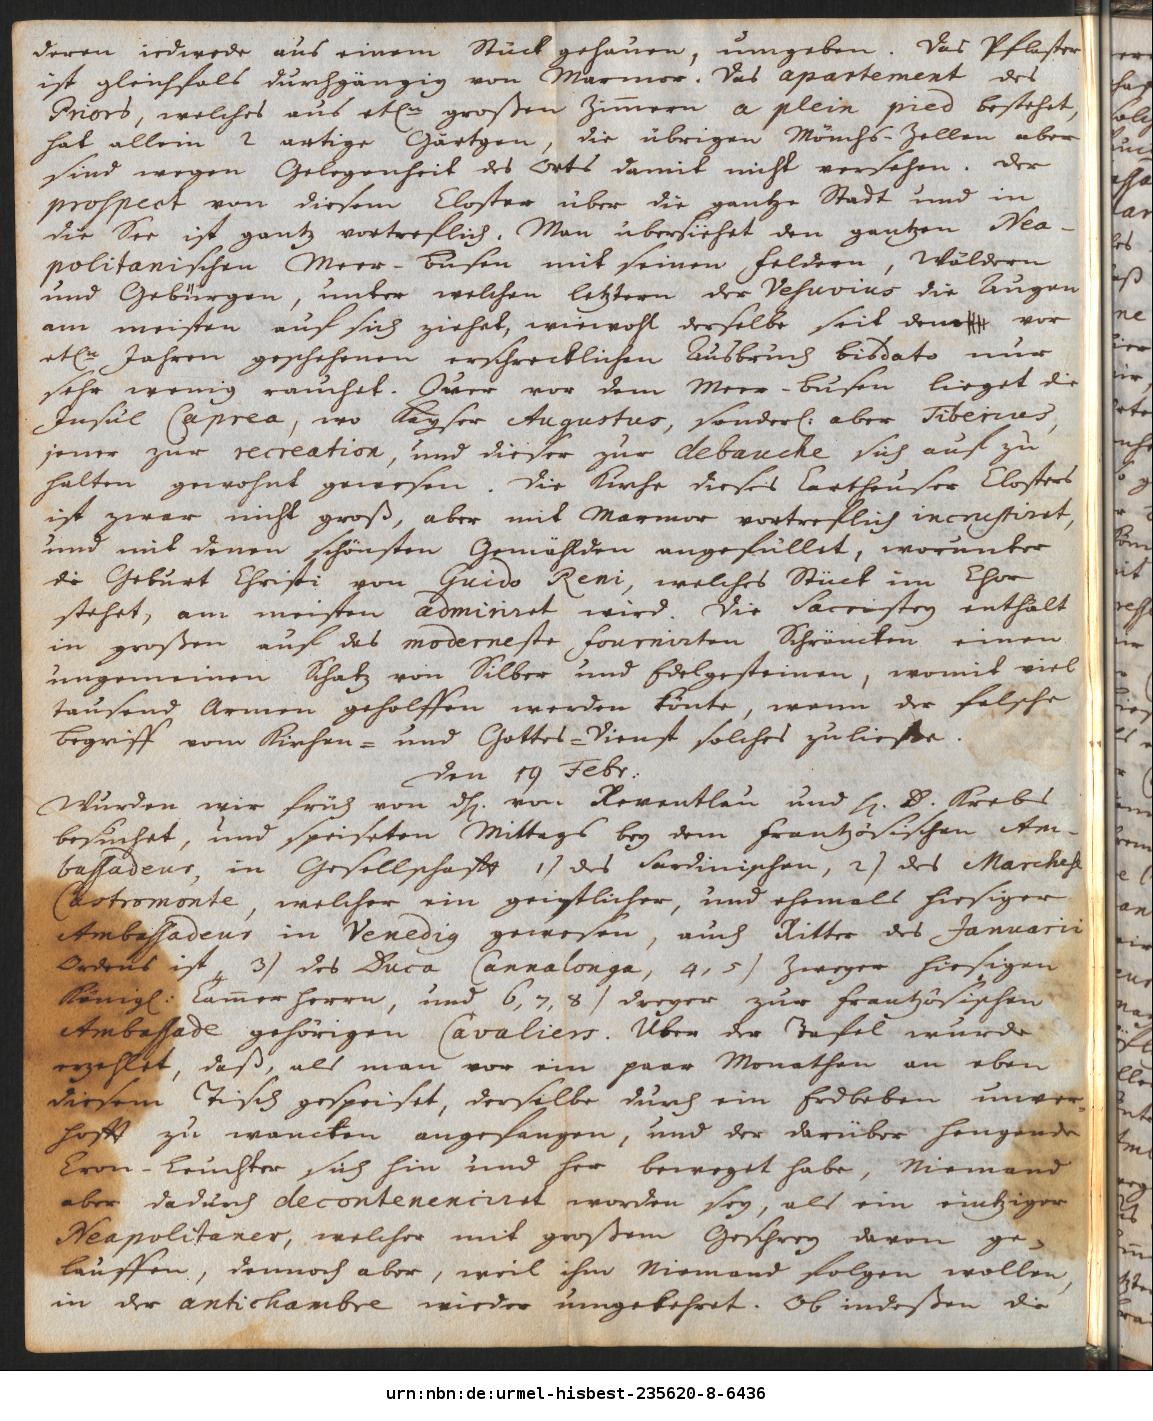 deren iedwede aus einem Stück gehauen, umgeben. Das Pflaster
ist gleichfals durchgängig von Marmor. Das apartement des
Priors, welches aus etl. großen Zimmern a plein pied bestehet,
hat allein 2 artige Gärtgen, die übrigen Mönchs-Zellen aber
sind wegen Gelegenheit des Orts damit nicht versehen. Der
prospect von diesem Closter über die gantze Stadt und in
die See ist gantz vortreflich. Man übersiehet den gantzen Nea-
politanischen Meer-busen mit seinen Feldern, Wäldern
und Gebürgen, unter welchen letztern der Vesuvius die Augen
am meisten auf sich ziehet, wiewohl derselbe seit dem vor
etl. Jahren geschehenen erschrecklichen Ausbruch bisdato nur
sehr wenig rauchet. Quer vor dem Meer-busen lieget die
Insul Caprea, wo Kayser Augustus, sonderl: aber Tiberius,
jener zur recreation, und dieser zur debauche sich auf zu
halten gewohnt gewesen. Die Kirche dieses Cartheuser Closters
ist zwar nicht groß, aber mit Marmor vortreflich incrustiret,
und mit denen schönsten Gemählden angefüllet, worunter
die Geburt Christi von Guido Reni, welches Stück im Chor
stehet, am meisten admiriret wird. Die Sacristey enthält
in großen auf das moderneste fournirten Schräncken einen
ungemeinen Schatz von Silber und Edelgesteinen, womit viel
tausend Armen geholffen werden könte, wenn der falsche
begriff vom Kirchen= und Gottes=Dienst solches zuließe.
den 19 Febr:
Wurden wir früh von H. von Reventlau und H. D. Krebs
besuchet, und speiseten Mittags bey dem Frantzösischen Am-
bassadeur, in Gesellschafft 1) des Sardinischen, 2) des Marchese
Castromonte, welcher ein geistlicher, und ehemals hiesiger
Ambassadeur in Venedig gewesen, auch Ritter des Januarii
Ordens ist, 3) des Duca Cannalonga, 4, 5) Zweyer hiesigen
Königl: Cammerherrn, und 6, 7, 8) dreyer zur Frantzösischen
Ambassade gehörigen Cavaliers. Über der Tafel wurde
erzehlet, daß, als man vor ein paar Monathen an eben
diesem Tisch gespeiset, derselbe durch ein Erdbeben unver-
hofft zu wancken angefangen, und der darüber hengende
Cron-Leuchter sich hin und her beweget habe, Niemand
aber dadurch decontenenciret worden sey, als ein eintziger
Neapolitaner, welcher mit großem Geschrey davon ge-
lauffen, dennoch aber, weil ihm Niemand folgen wollen,
in der antichambre wieder umgekehret. Ob indeßen die
urn:nbn:de:urmel-hisbest-235620-8-6436